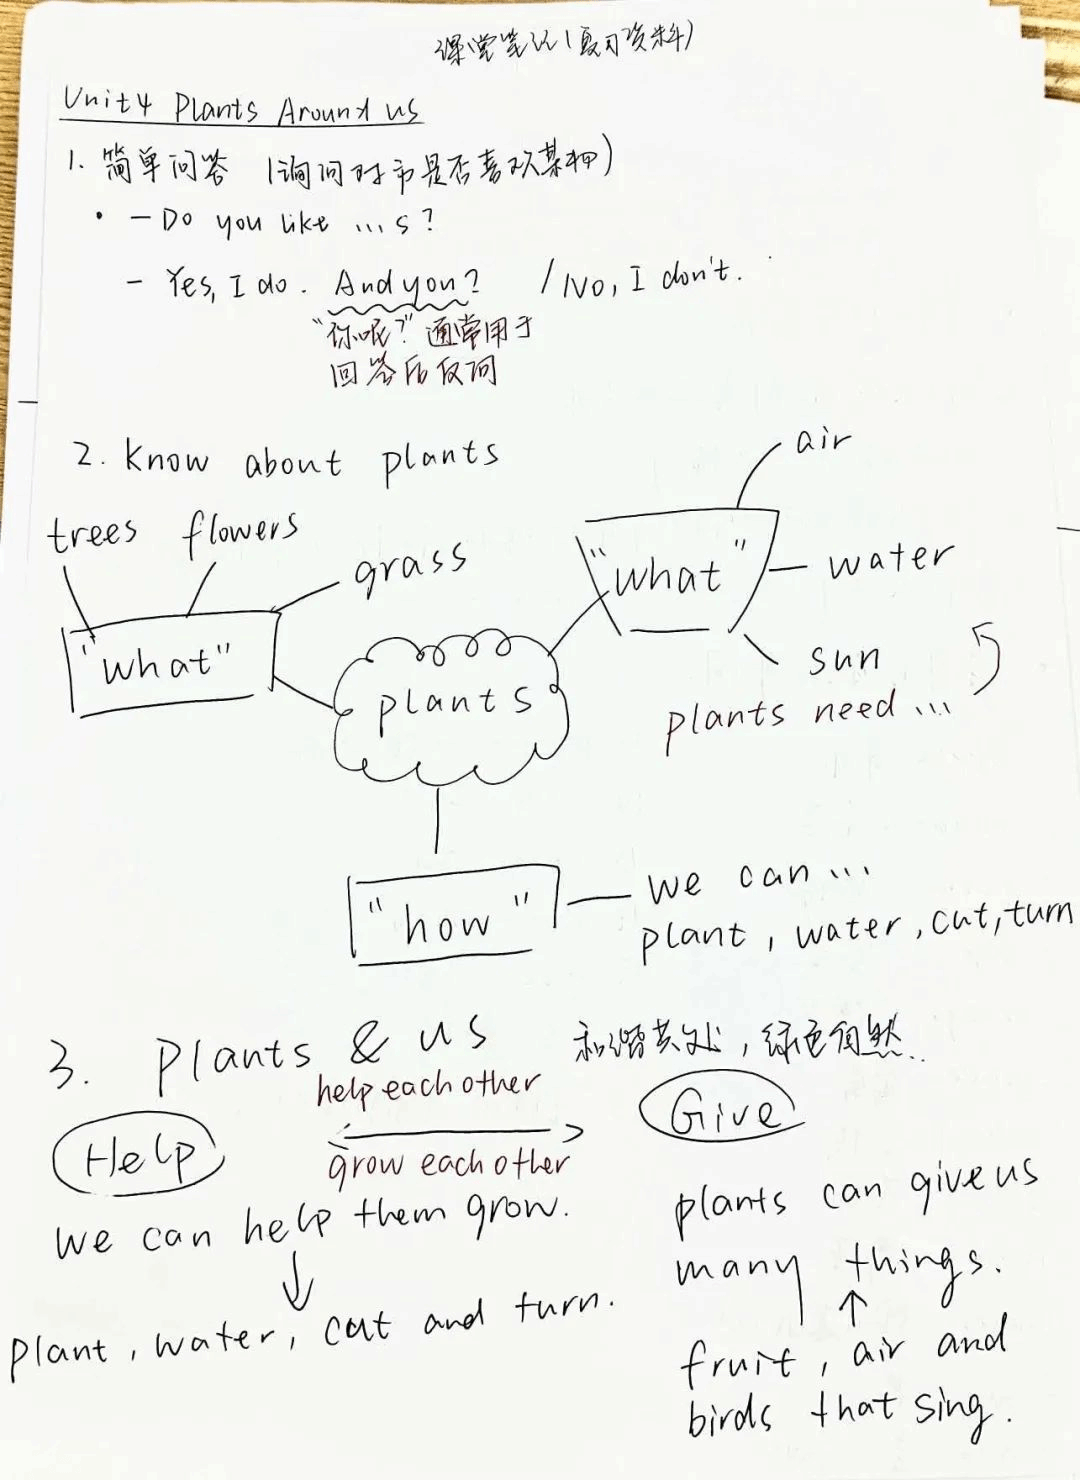 课堂笔记(复习资料)
Unit4 Plants Around us
1. 简单问答 (询问对方是否喜欢某种)
• - Do you like ...s?
- Yes, I do. And you? / No, I don't.
"你呢?"通常用于
回答后反问
2. Know about plants
air
trees flowers
grass
"what"
water
"what"
sun
plants
plants need ...
"how"
we can ...
plant, water, cut, turn
3. Plants & us 和谐共处,绿色自然..
help each other
Help
Give
grow each other
we can help them grow.
plants can give us
many things.
plant, water, cut and turn.
fruit, air and
birds that sing.